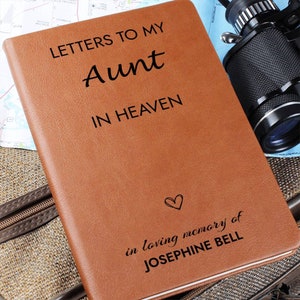 LETTERS TO MY
Aunt
IN HEAVEN
in loving memory of
JOSEPHINE BELL